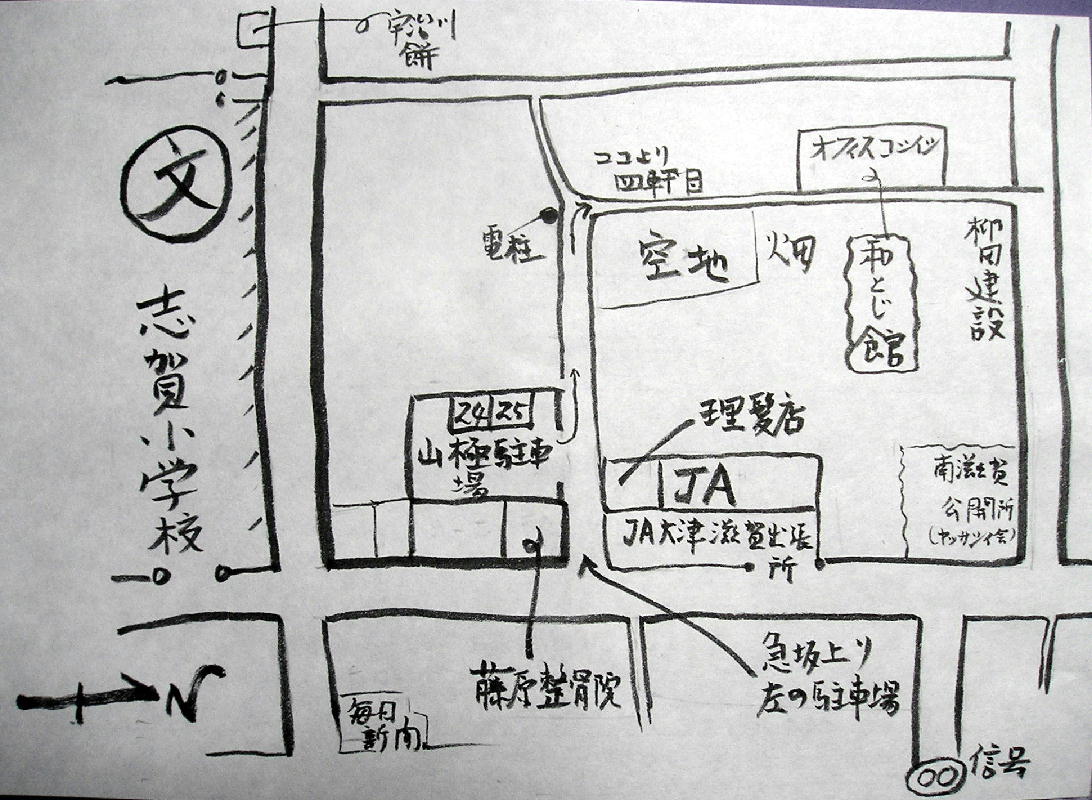 宇治川
餅
文
ココより
四軒目
オフィスコンイツ
電柱
空地
畑
和とじ
館
柳田建設
志賀小学校
24 25
山極駐車
場
理髪店
JA
JA大津滋賀出張
所
南滋賀
公開所
N
藤原整骨院
急坂上り
左の駐車場
毎日
新聞
信号